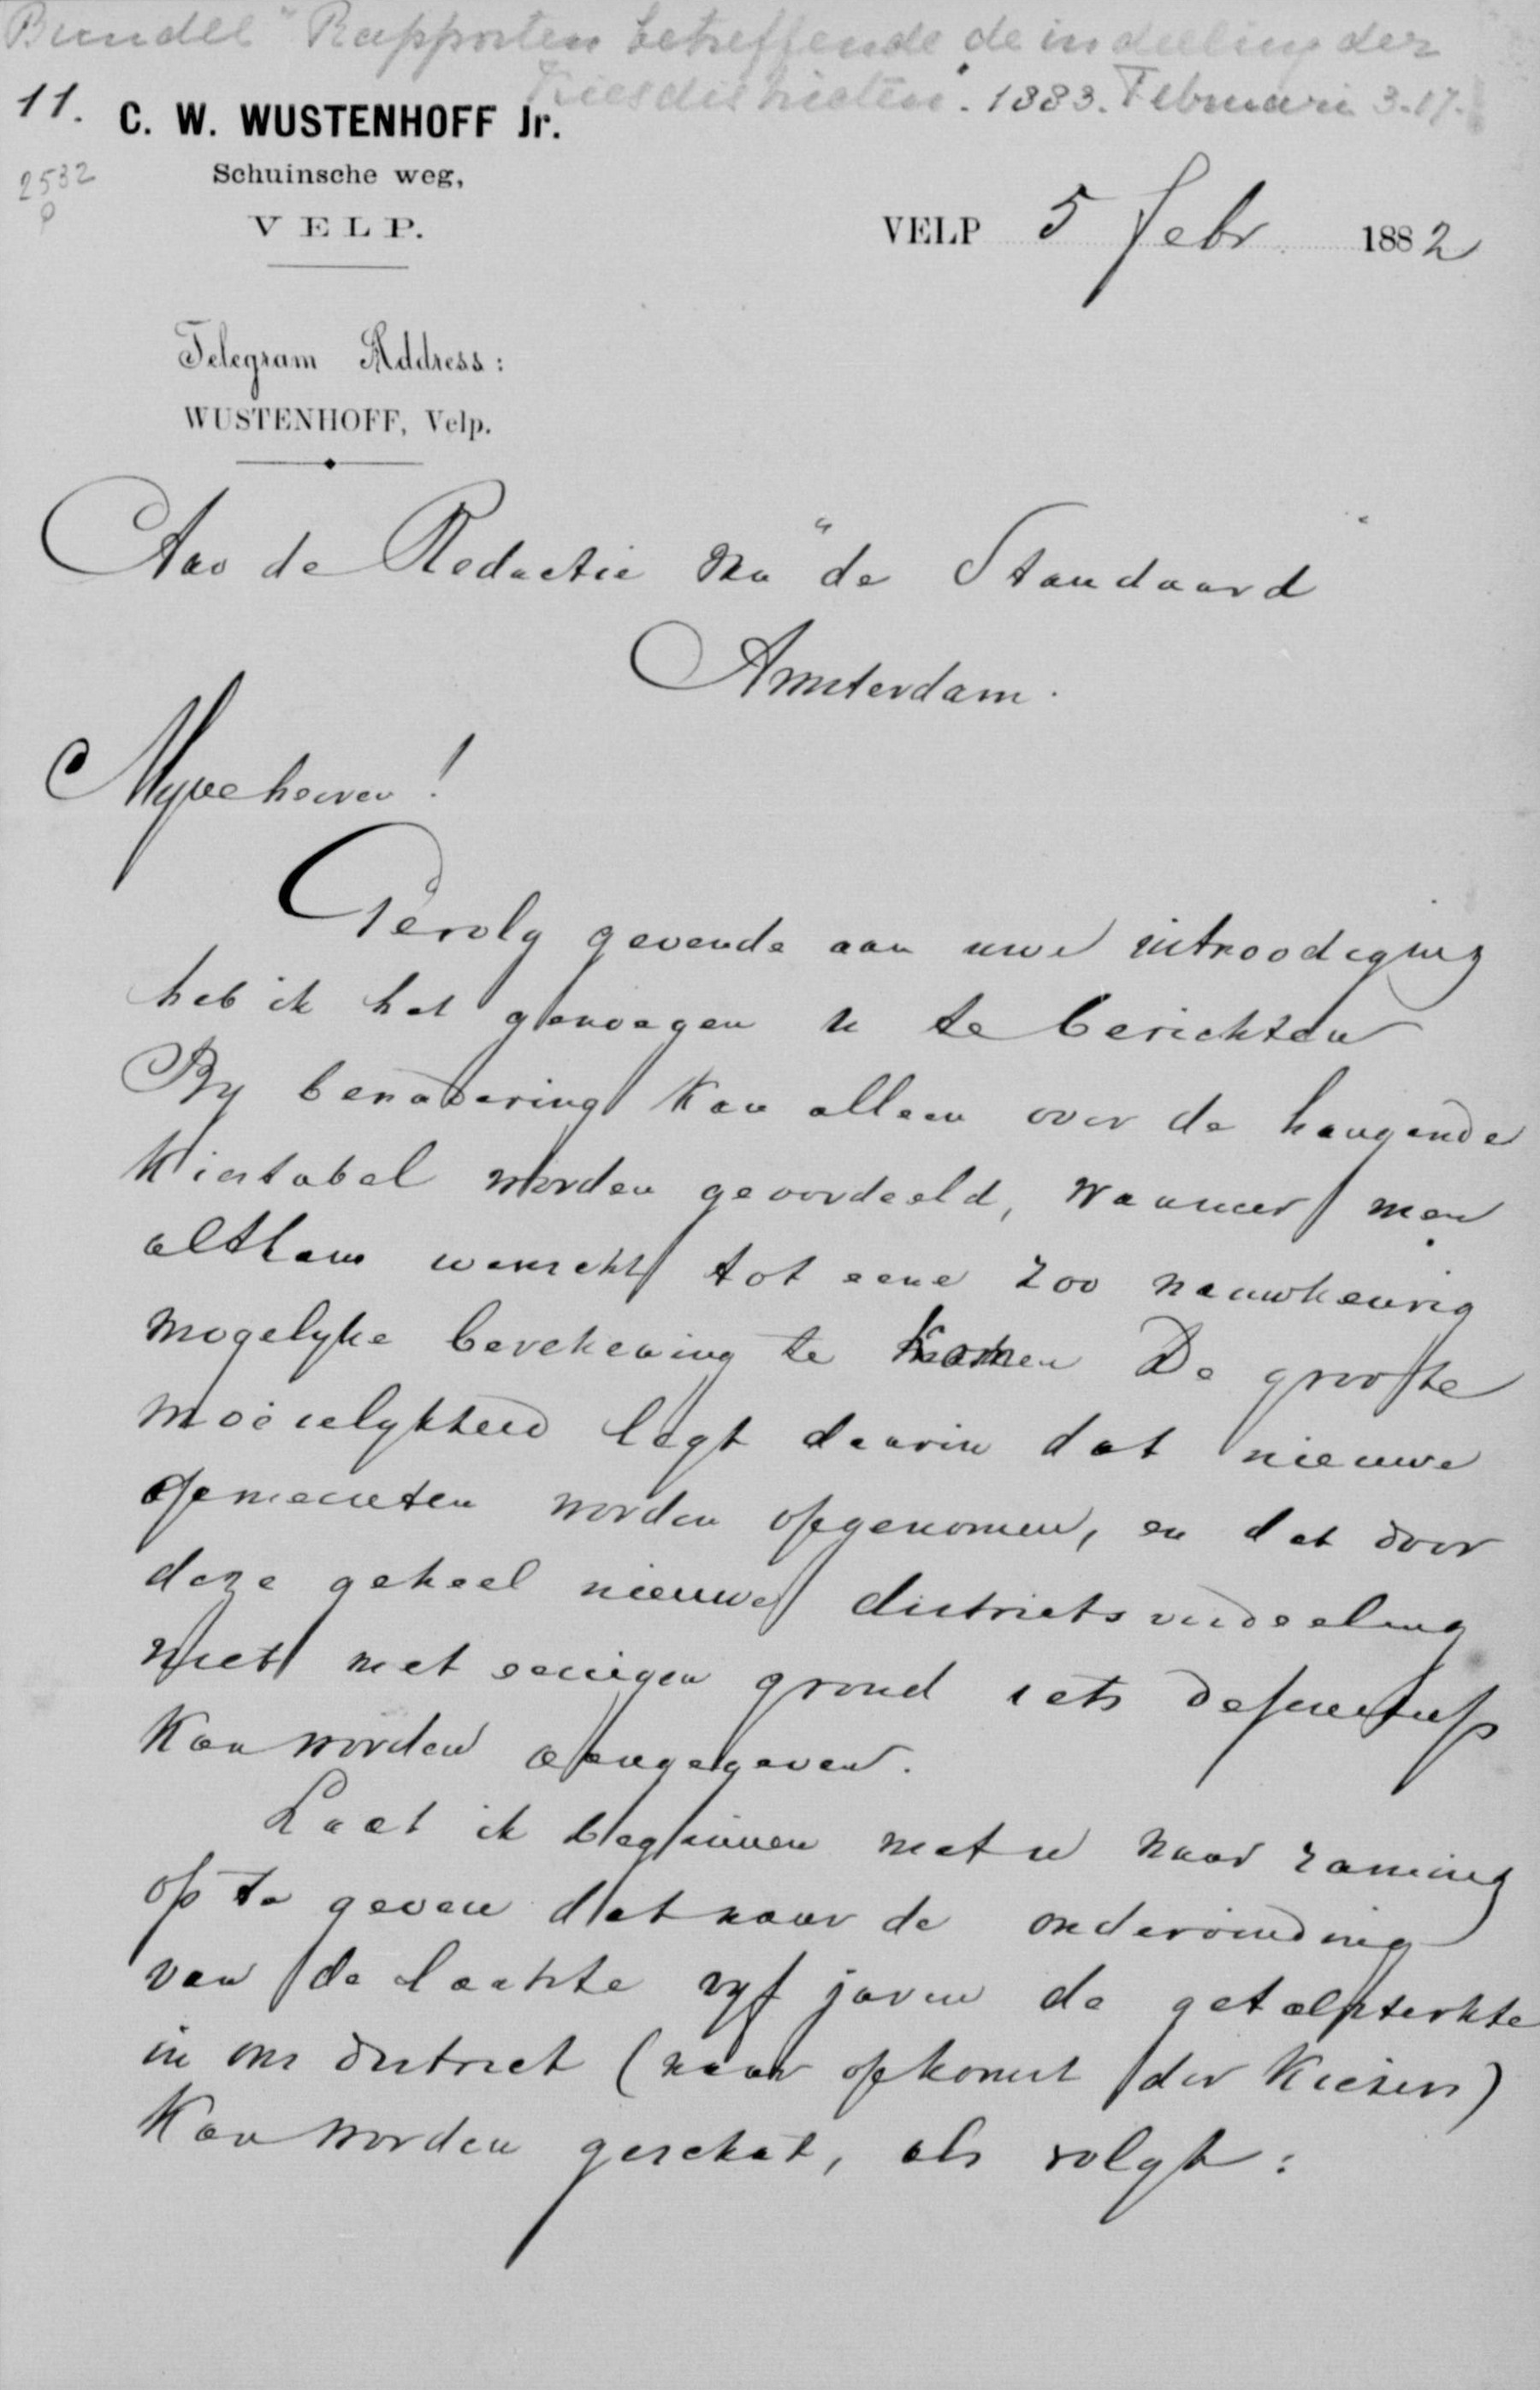 Bundel "Rapporten betreffende de indeeling der
Kiesdistricten". 1883. Februari 3-17.
11.
C. W. WUSTENHOFF Jr.
2532
Schuinsche weg,
VELP.
VELP 5 Febr 1882
Telegram Address:
WUSTENHOFF, Velp.
Aan de Redactie van "de Standaard"
Amsterdam.
Mijne heeren!
Gevolg gevende aan uwe uitnoodiging
heb ik het genoegen u te berichten
By benadering kan alleen over de hangende
Kiestabel worden geoordeeld, wanneer men
althans wenscht tot eene zoo nauwkeurig
mogelyke berekening te komen De grootste
moeielykheid legt daarin dat nieuwe
gemeenten worden opgenomen, en dat door
deze geheel nieuwe districtsverdeeling
niet met eenigen grond iets definitiefs
kan worden aangegeven.
Laat ik beginnen met u naar raming
op te geven dat naar de ondervinding
van de laatste vyf jaren de getalsterkte
in ons district (naar opkomst der Kiezers)
kan worden geschat, als volgt: